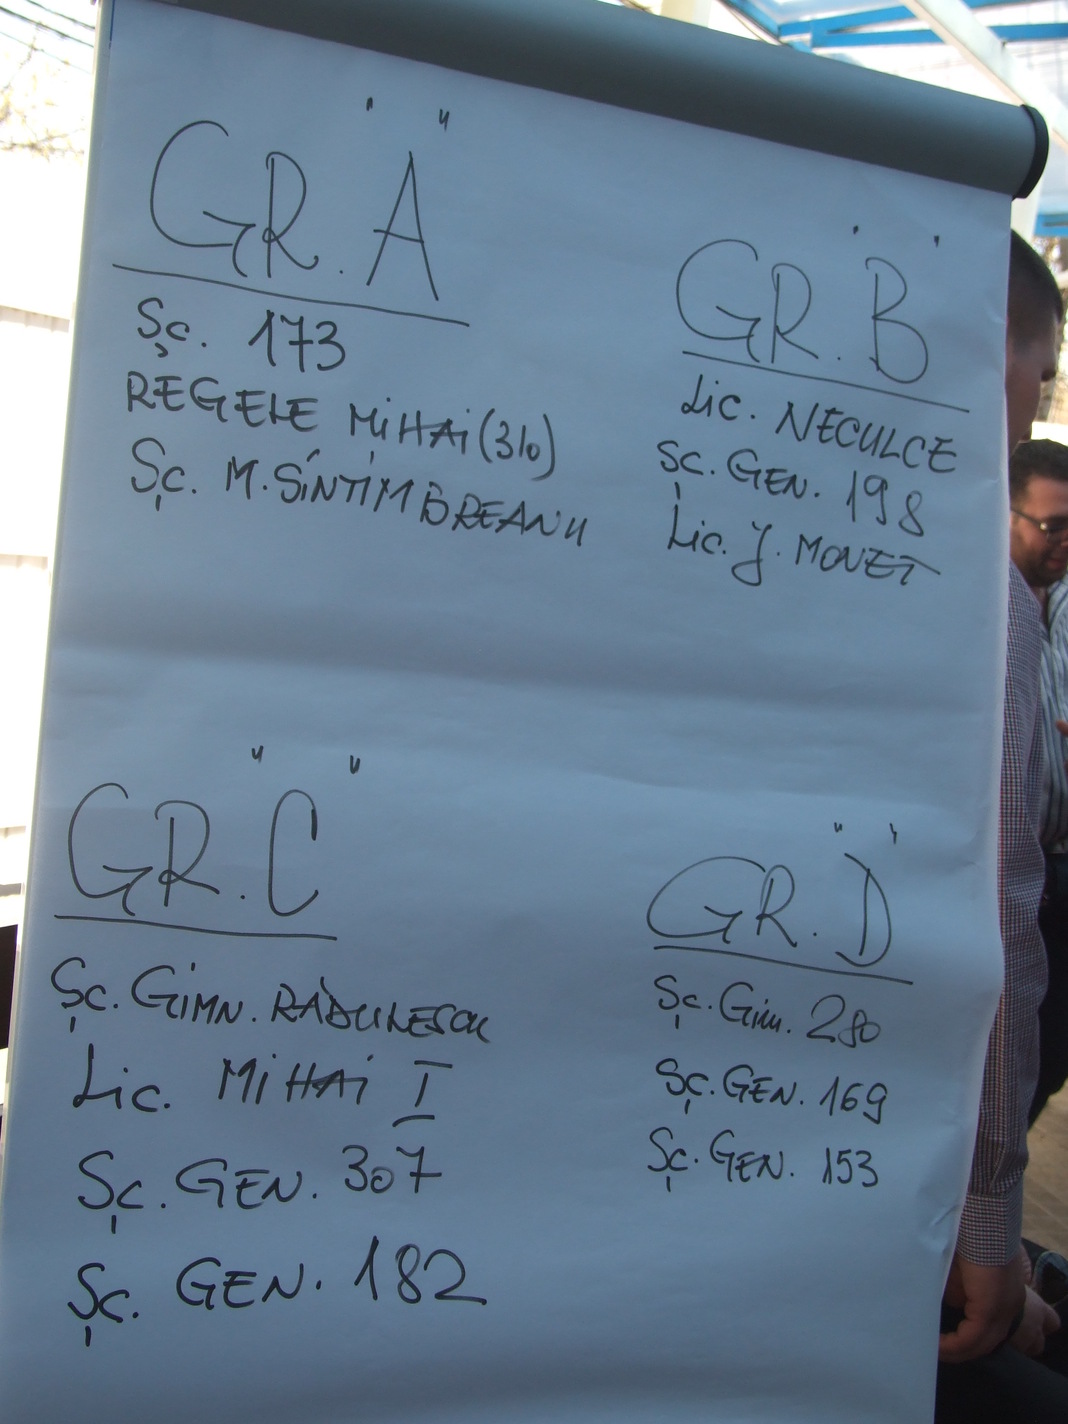 GR. "A"
Șc. 173
REGELE MIHAI (310)
Șc. M. SÎNTIMBREANU
GR. "B"
Lic. NECULCE
Șc. GEN. 198
Lic. J. MONET
GR. "C"
Șc. GIMN. RĂDULESCU
Lic. MIHAI I
Șc. GEN. 307
Șc. GEN. 182
GR. "D"
Șc. Gim. 280
Șc. GEN. 169
Șc. GEN. 153